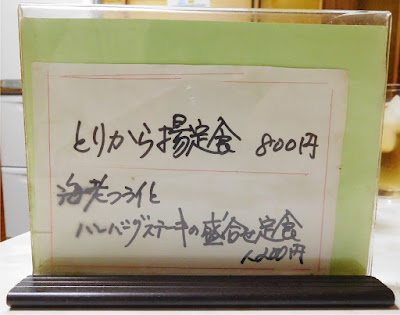 とりから揚定食 800円
海老フライと
ハンバーグステーキの盛合せ定食
1,200円